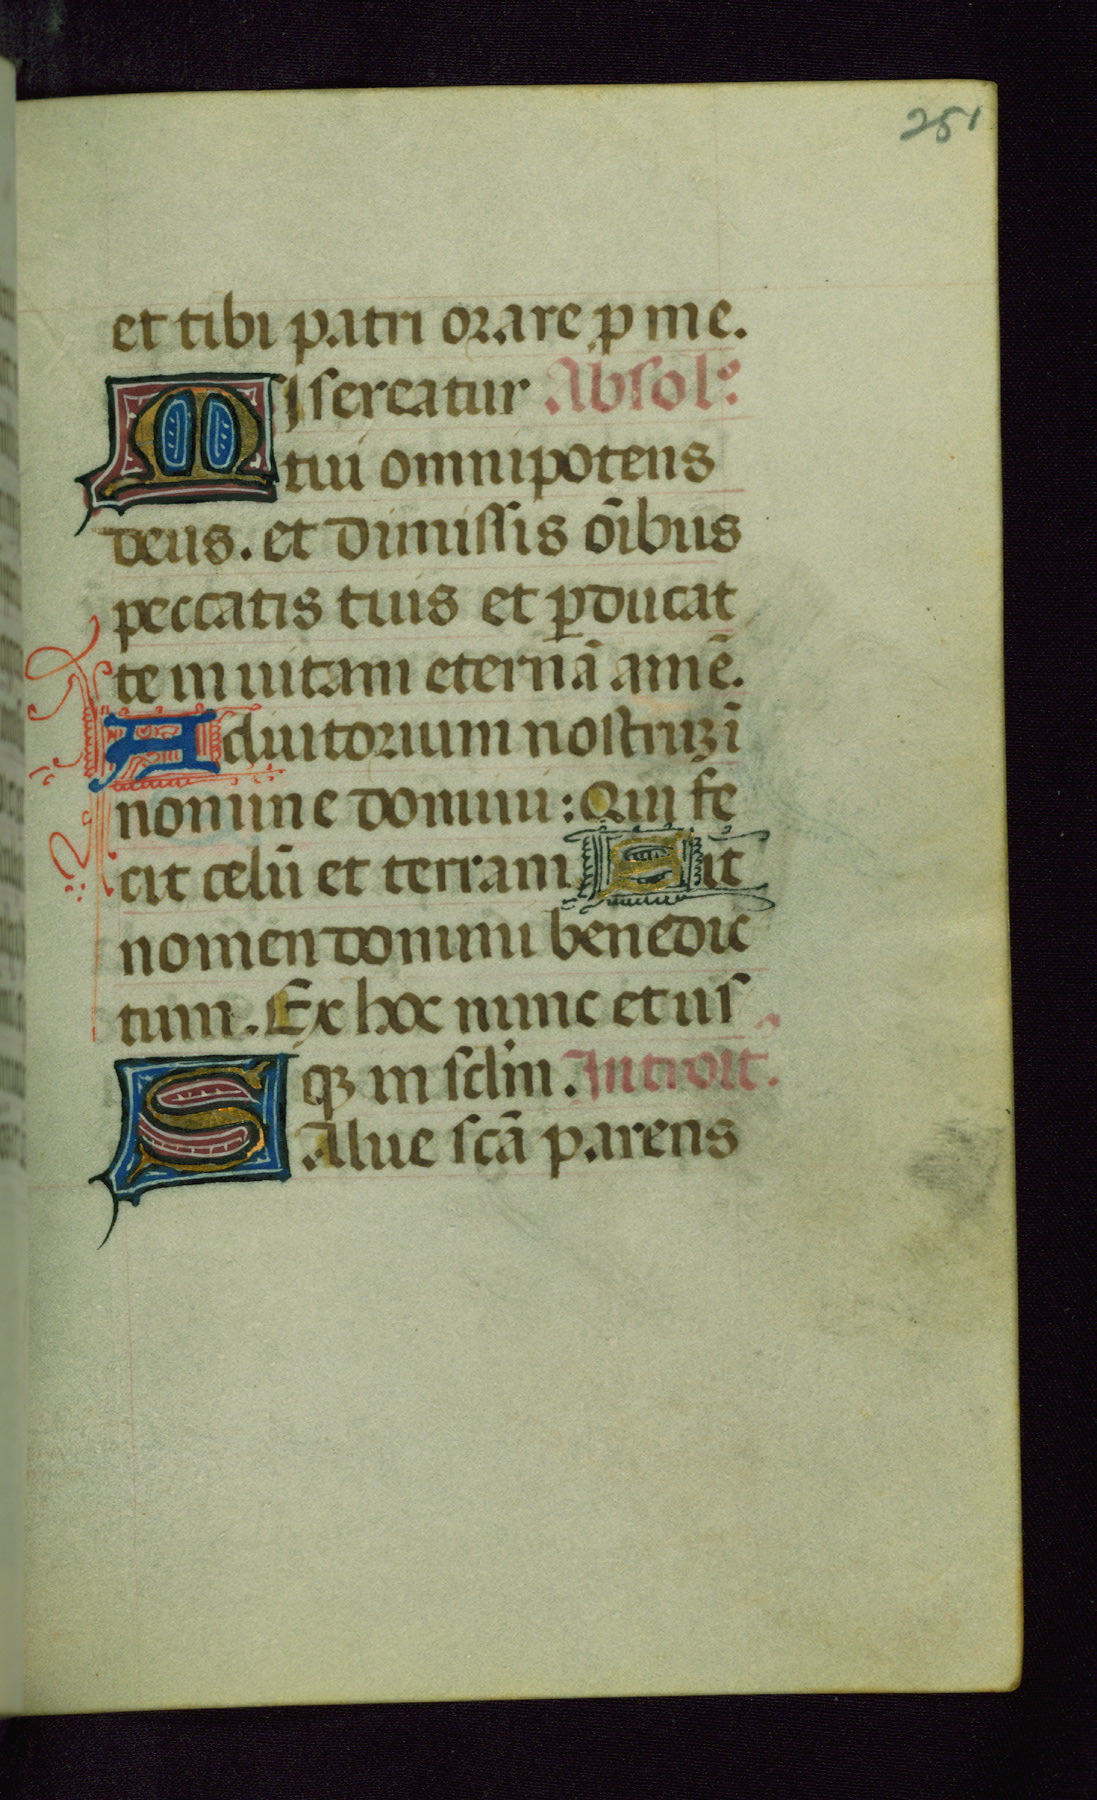 251
et tibi patri orare p me.
MIsereatur Absolᵒ:
tui omnipotens
deus. et dimissis oībus
peccatis tuis et ꝑducat
te in uitam eternā amē.
Adiutorium nostruꝫ ī
nomine domini: Qui fe
cit celū et terram. Sit
nomen domini benedic
tum. Ex hoc nunc et us
qꝫ in sclm̄. Introit.
SAlue scā parens